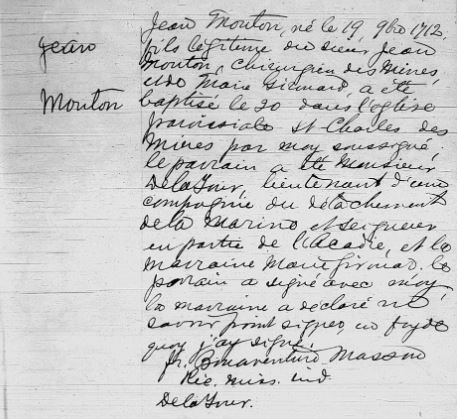 Jean Mouton, né le 19, 9bre 1712,
Jean
fils légitime du sieur Jean
Mouton, Chirurgien des Mines,
et de Marie Girouard, a été
Mouton
baptisé le 20 dans l'église
paroissiale St Charles des
Mines par moy soussigné.
le parrain a été Monsieur
DelaTour, lieutenant d'une
compagnie du détachement
de la Marine et seigneur
en partie de l'Acadie, et la
marraine Marie Girouard. le
parain a signé avec moy,
la marraine a déclaré ne
savoir point signer, en foy de
quoy j'ay signé.
fr. Bonaventure Masson
Rec. miss. ind.
DelaTour.